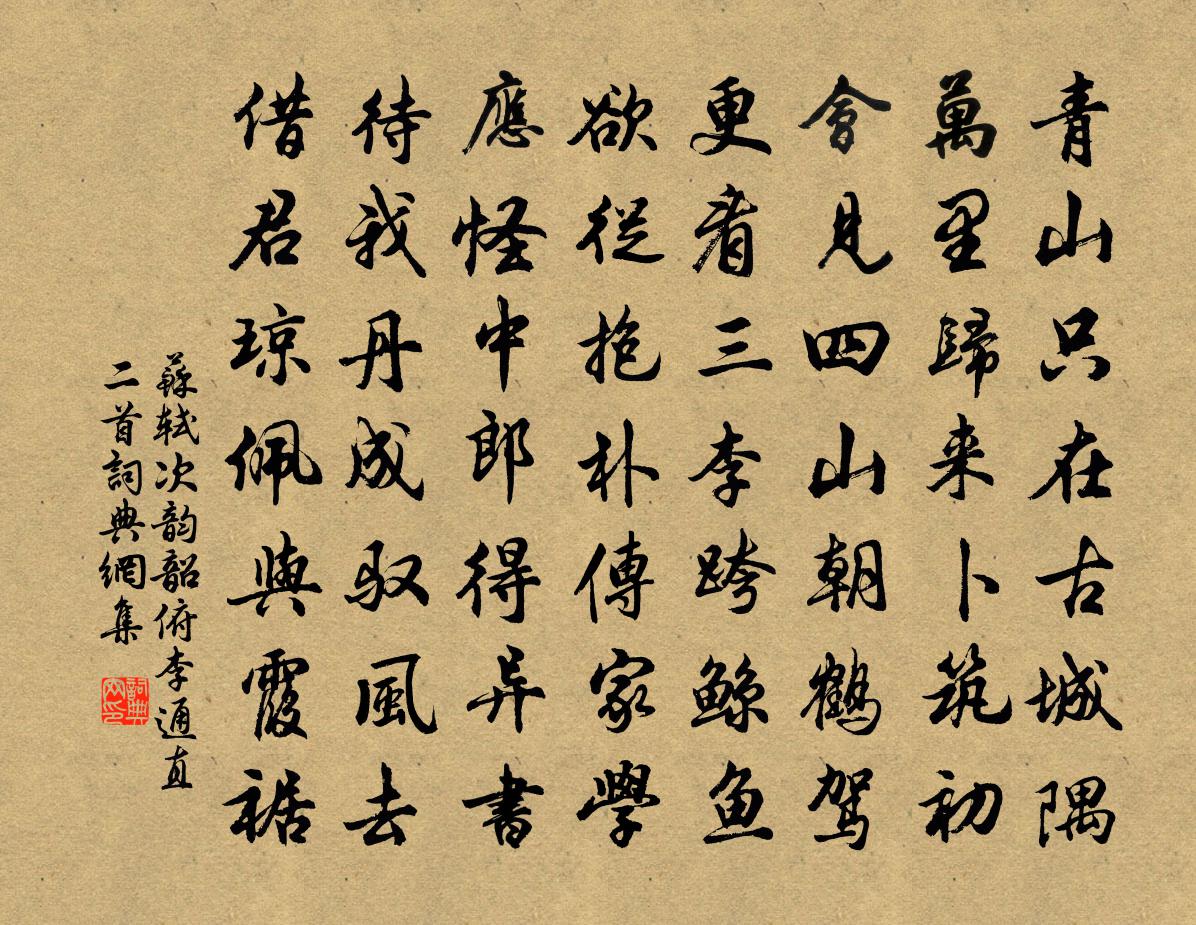 青山只在古城隅
萬里歸来卜筑初
會見四山朝鶴駕
更看三李跨鯨魚
欲從抱朴傳家學
應怪中郎得异書
待我丹成馭風去
借君琼佩與霞裾
蘇轼次韵韶俯李通直
二首詞典網集
詞典网印